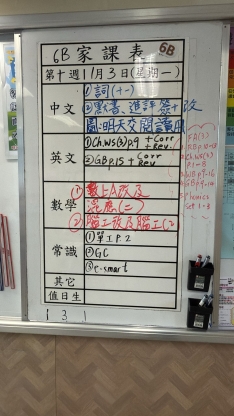 6B家課表
6B
第十週11月3日(星期一)
中文
①詞(十一)
②默書、進評簽+改
圖:明天交閱讀冊
英文
①Ch.WS(3)p.9 +Corr +Rev.
②GB P.15 + Corr Rev.
數學
①數上A改及
混應(二)
②腦工改及腦工(2)
常識
①單工P.2
②GC
③e-smart
其它
值日生
1 3 1